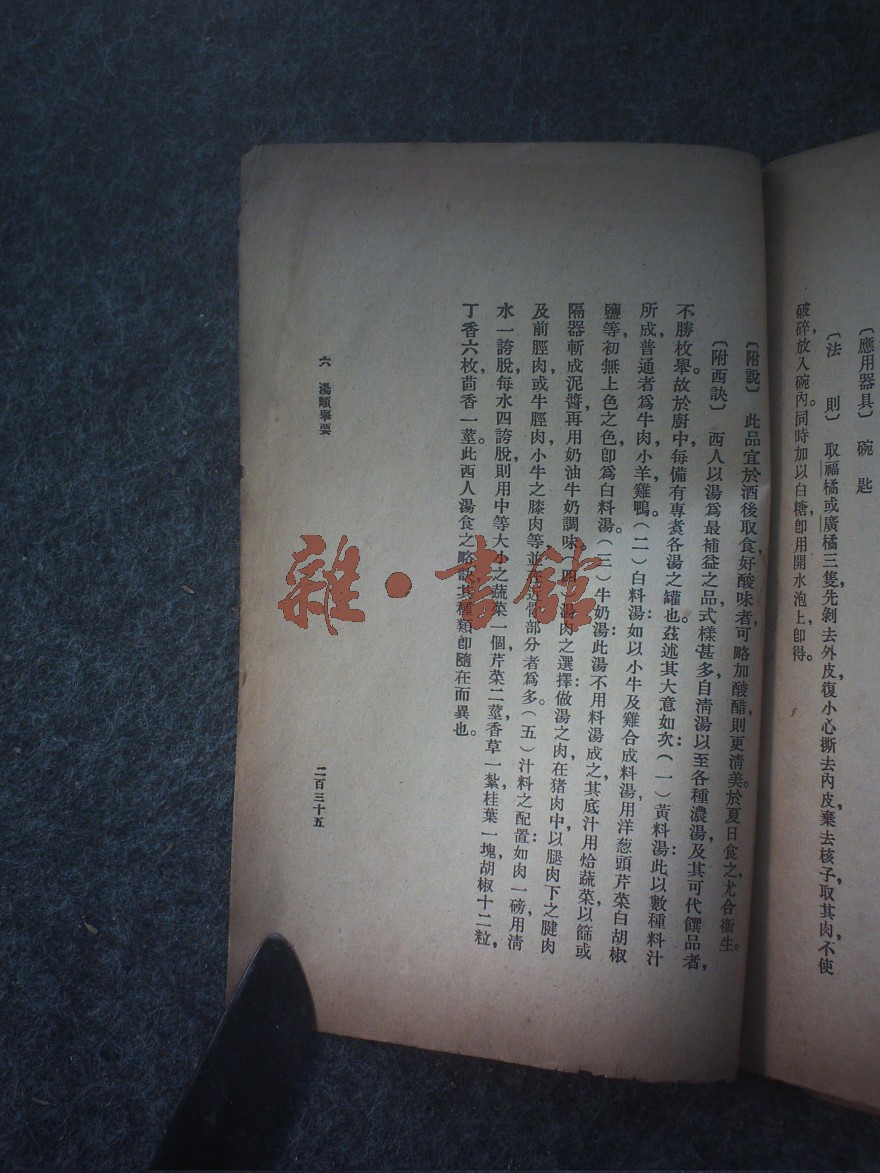 〔應用器具〕 碗 匙
〔法 則〕 取福橘或廣橘三隻，先剝去外皮，復小心撕去內皮，棄去核子，取其肉，不使
破碎，放入碗內。同時加以白糖，卽用開水泡上，卽得。
〔附說〕 此品宜於酒後取食，好酸味者，可略加酸醋，則更清美。於夏日食之，尤合衞生。
〔附西訣〕 西人以湯爲最補益之品，式樣甚多，自淸湯以至各種濃湯，及其可代饌品者，
不勝枚舉。故於廚中，每備有專煑各湯之罐也。茲述其大意如次：（一）黃料湯：此以數種料汁
所成，普通者爲牛肉，小羊，雞鴨。（二）白料湯：如以小牛及雞合成料湯，用洋葱頭芹菜白胡椒
鹽等，初無上色之色，卽爲白料湯。（三）牛奶湯：此湯不用料湯成之，其底汁用烚蔬菜以篩或
隔器斬成泥醬，再用奶油牛奶調味（四）湯肉之選擇：做湯之肉，在猪肉中，以腿肉下之腱肉
及前脛肉，或牛脛肉，小牛之膝肉等，並近骨部分者爲多。（五）汁料之配置：如肉一磅，用清
水一誇脫，每水四誇脫，則用中等大小之蔬菜一個，芹菜二莖，香草一紮，桂葉一塊，胡椒十二粒，
丁香六枚，茴香一莖。此西人湯食之略，其種類卽隨在而異也。
六 湯類舉要
二百三十五
雜·書館